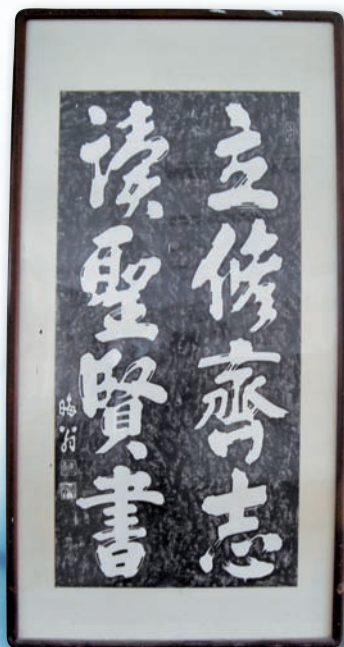 立修齊志
读聖賢書
晦翁